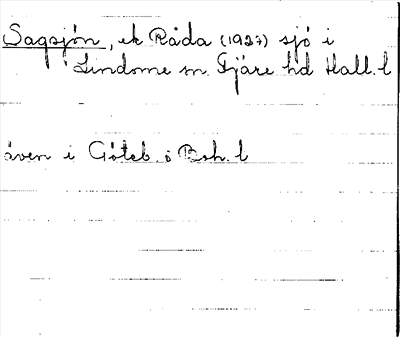 Sagsjön, ek Råda (1927) sjö i
Lindome sn. Fjäre hd Hall. l
även i Göteb. o Boh. l